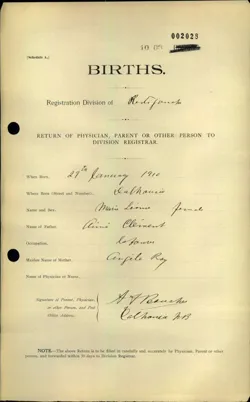 002025
(Schedule A.)
BIRTHS.
Registration Division of Restigouche
RETURN OF PHYSICIAN, PARENT OR OTHER PERSON TO
DIVISION REGISTRAR.
When Born, 29th January 1910
Where Born (Street and Number), Dalhousie
Name and Sex, Marie Leonie female
Name of Father, Aimé Clement
Occupation, Laborer
Maiden Name of Mother, Angele Roy
Name of Physician or Nurse,
Signature of Parent, Physician
or other Person, and Post
Office Address,
Dalhousie N.B
NOTE.—The above Return is to be filled in carefully and accurately by Physician, Parent or other
person, and forwarded within 30 days to Division Registrar.